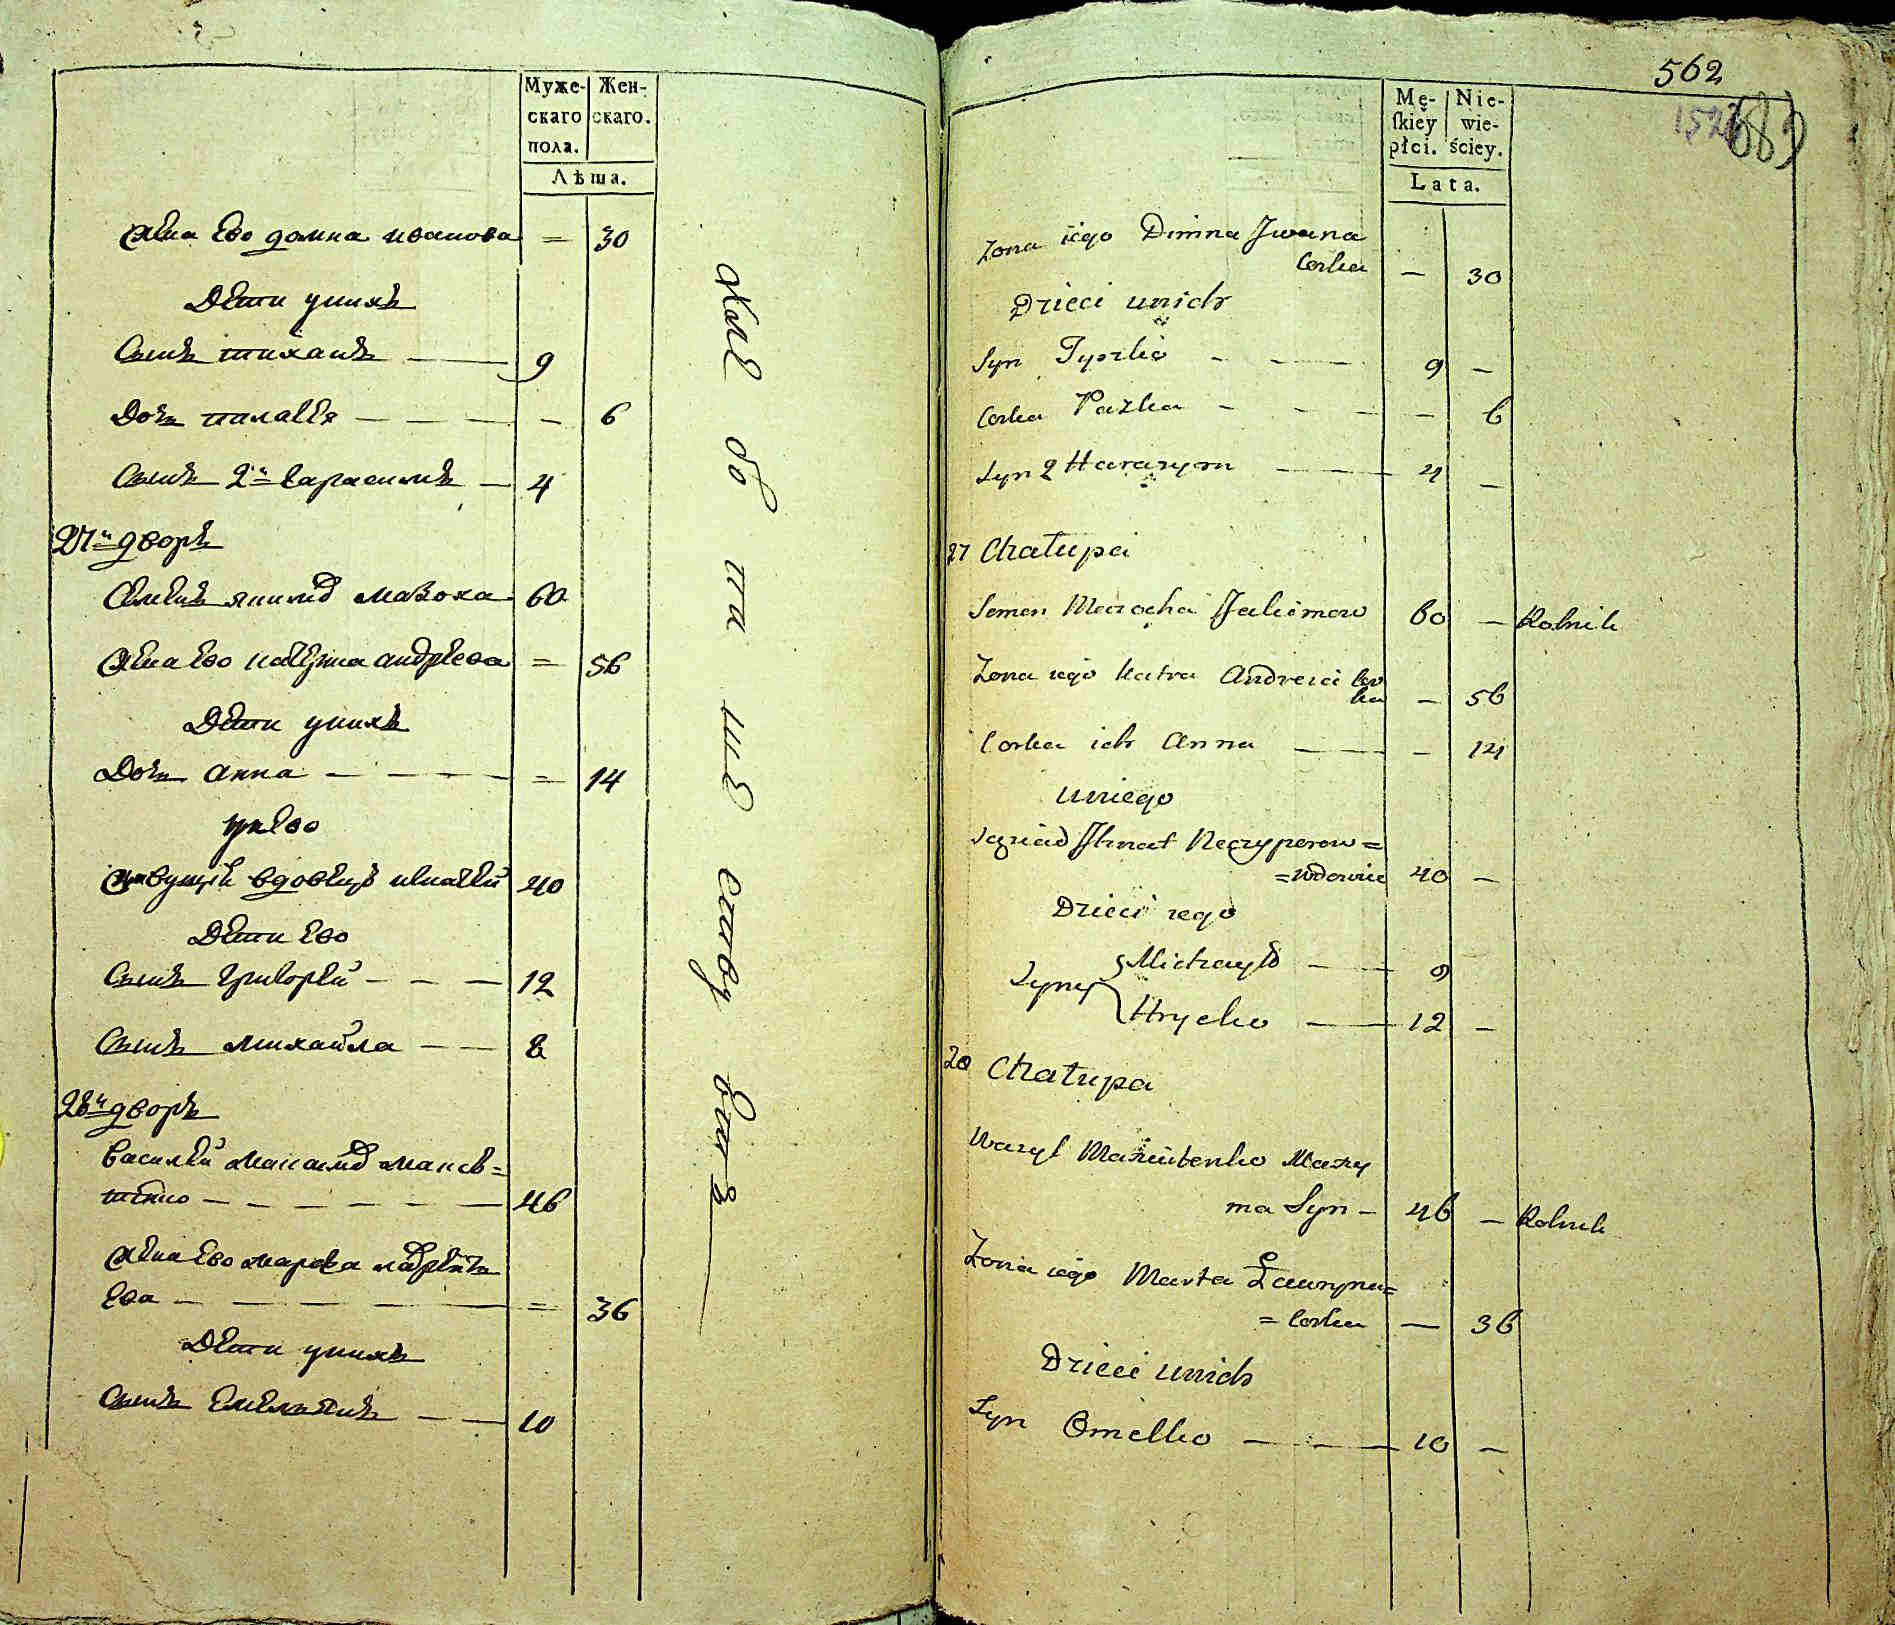 Муже-
скаго
пола.
Жен-
скаго.
Лѣта.
Жена Ево домна иванова = 30
Дети уних
Сынъ тиханъ 9
Дочь палагея - 6
Сынъ 2й Гарасимъ 4
27й дворъ
Семенъ якимов мазоха 60
Жена Ево катерина андреева = 56
Дети унихъ
Дочь Анна = 14
унево
вдовецъ игнатей 40
Дети Ево
Сынъ Григорей 12
Сынъ михайла 8
28й дворъ
Василей
46
Жена Ево марфа
Ева = 36
Дети унихъ
Сынъ Емельянъ 10
562
Mę-
ſkiéy
płci.
Nie-
wie-
ściey.
Lata.
Zona iego Dimna Jwana
Corka — 30
Dzieci unich
Syn Tyszko 9 —
Corka Pazka — 6
Syn 2 Harasym 4 —
27 Chałupa
Semen Mazocha Jakimow 60 — Rolnik
Zona iego Katra Andreia Cor
ka — 56
Corka ich Anna — 14
Uniego
Sąsiad Ihnat Neczyporow =
= Wdowiec 40 —
Dzieci iego
Syny Michayło 9
Hryćko 12 —
28 Chałupa
Wasyl
ma Syn 46 — Rolnik
Zona iego Marta
= Corka — 36
Dzieci Unich
Syn Omelko 10 —